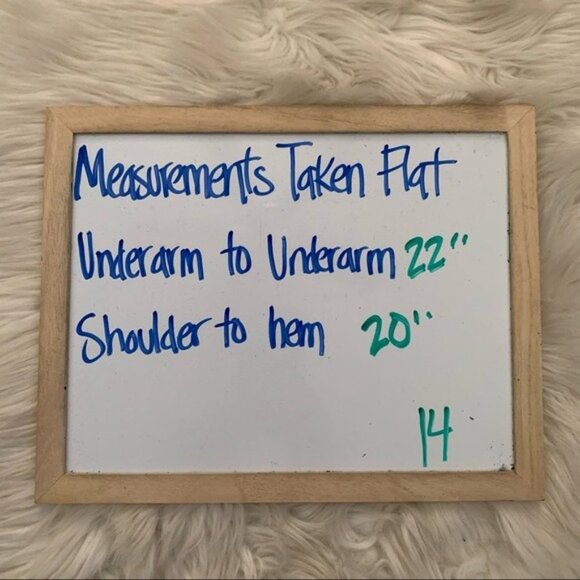 Measurements Taken Flat
Underarm to Underarm 22"
Shoulder to hem 20"
14